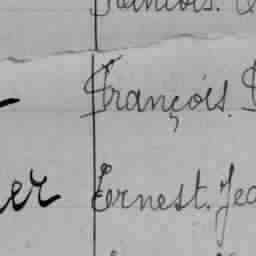 François.
François.
er Ernest. Jea